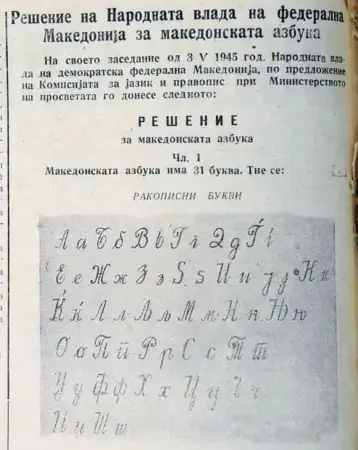 Решение на Народната влада на федерална
Македонија за македонската азбука
На своето заседание од 3 V 1945 год. Народната вла-
да на демократска федерална Македонија, по предложение
на Комисијата за јазик и правопис при Министерството
на просветата го донесе следкото:
РЕШЕНИЕ
за македонската азбука
Чл. 1
Македонската азбука има 31 буква. Тие се:
РАКОПИСНИ БУКВИ
А а Б б В в Г г Д д Ѓ ѓ
Е е Ж ж З з Ѕ ѕ И и Ј ј К к
Ќ ќ Л л Љ љ М м Н н Њ њ
О о П п Р р С с Т т
У у Ф ф Х х Ц ц Ч ч
Џ џ Ш ш